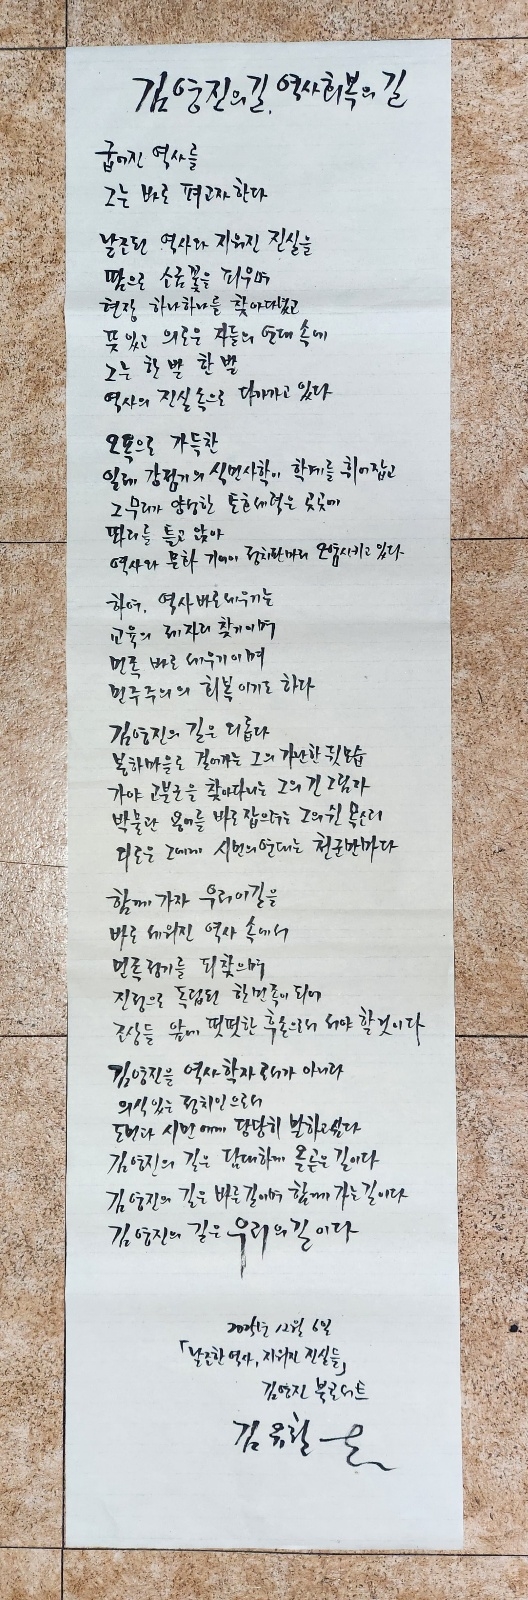 김영진의 길, 역사회복의 길
굽어진 역사를
그는 바로 펴고자 한다
날조된 역사와 지워진 진실을
땀으로 소금꽃을 피우며
현장 하나하나를 찾아다녔고
뜻있고 의로운 자들의 연대 속에
그는 한 발 한 발
역사의 진실 속으로 다가가고 있다
오욕으로 가득찬
일제 강점기의 식민사학이 학계를 휘어잡고
그 무리가 양성한 토호세력은 곳곳에
똬리를 틀고 앉아
역사와 문화 거기에 정치판마저 오염시키고 있다
하여, 역사바로세우기는
교육의 제자리 찾기이며
민족 바로 세우기이며
민주주의의 회복이기도 하다
김영진의 길은 외롭다
봉하마을로 걸어가는 그의 가난한 뒷모습
가야 고분군을 찾아다니는 그의 긴 그림자
박물관 용어를 바로잡으려는 그의 쉰 목소리
외로운 그에게 시민의 연대는 천군만마다
함께 가자 우리 이 길을
바로 세워진 역사 속에서
민족정기를 되찾으며
진정으로 독립된 한민족이 되어
조상들 앞에 떳떳한 후손으로서 서야 할 것이다
김영진을 역사학자로서가 아니라
의식있는 정치인으로서
도민과 시민에게 당당히 말하고 싶다
김영진의 길은 담대하게 옳은 길이다
김영진의 길은 바른 길이며 함께 가는 길이다
김영진의 길은 우리의 길이다
2025년 12월 6일
「날조한 역사, 지워진 진실들」
김영진 북콘서트
김유철